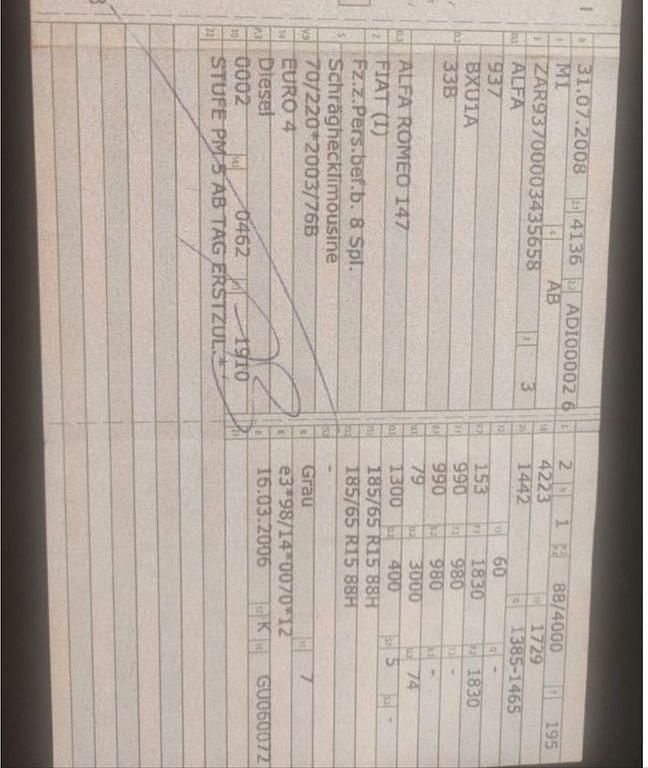 31.07.2008 2.1 4136 2.2 ADI00002 6
M1 AB
ZAR93700003435658 3 3
ALFA
937
BXU1A
33B
ALFA ROMEO 147
FIAT (I)
Fz.z.Pers.bef.b. 8 Spl.
Schräghecklimousine
70/220*2003/76B
EURO 4
Diesel
0002 0462 1910
STUFE PM 5 AB TAG ERSTZUL.*
2 1 88/4000 195
4223 1729
1442 1385-1465
60 -
153 1830 1830
990 980 -
990 980 -
79 3000 74
1300 400 5 -
185/65 R15 88H
185/65 R15 88H
-
Grau 7
e3*98/14*0070*12
16.03.2006 K GU060072